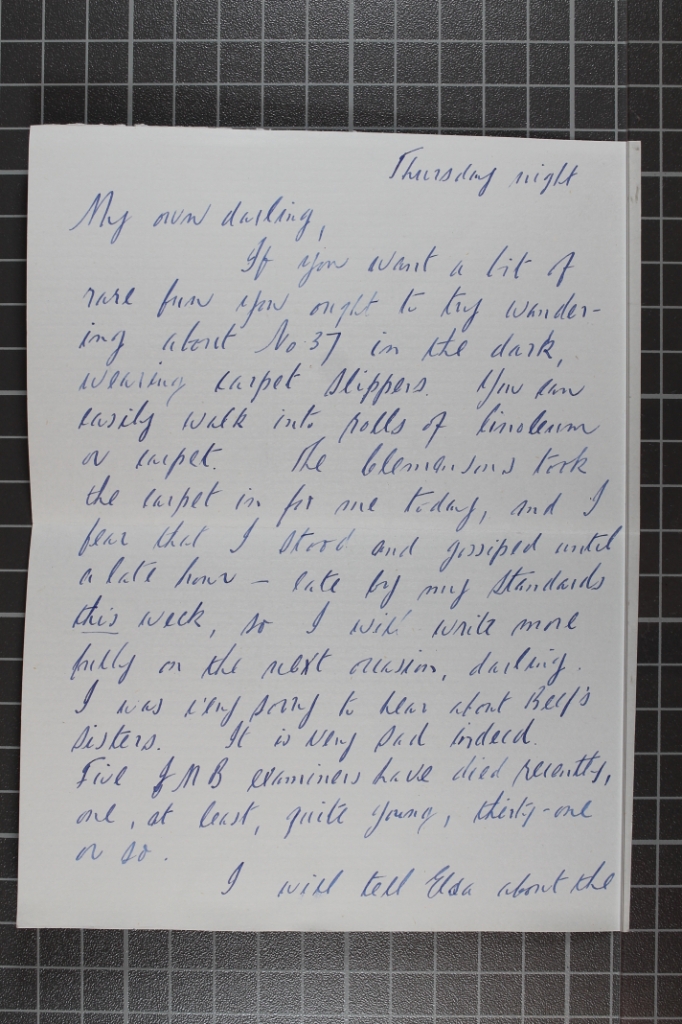 Thursday night
My own darling,
If you want a bit of
rare fun you ought to try wander-
ing about No 37 in the dark,
wearing carpet slippers. You can
easily walk into rolls of linoleum
or carpet. The Clemensons took
the carpet in for me today, and I
fear that I stood and gossiped until
a late hour – late by my standards
this week, so I will write more
fully on the next occasion, darling.
I was very sorry to hear about
sisters. It is very sad indeed.
Five JMB examiners have died recently,
one, at least, quite young, thirty-one
or so.
I will tell Elsa about the